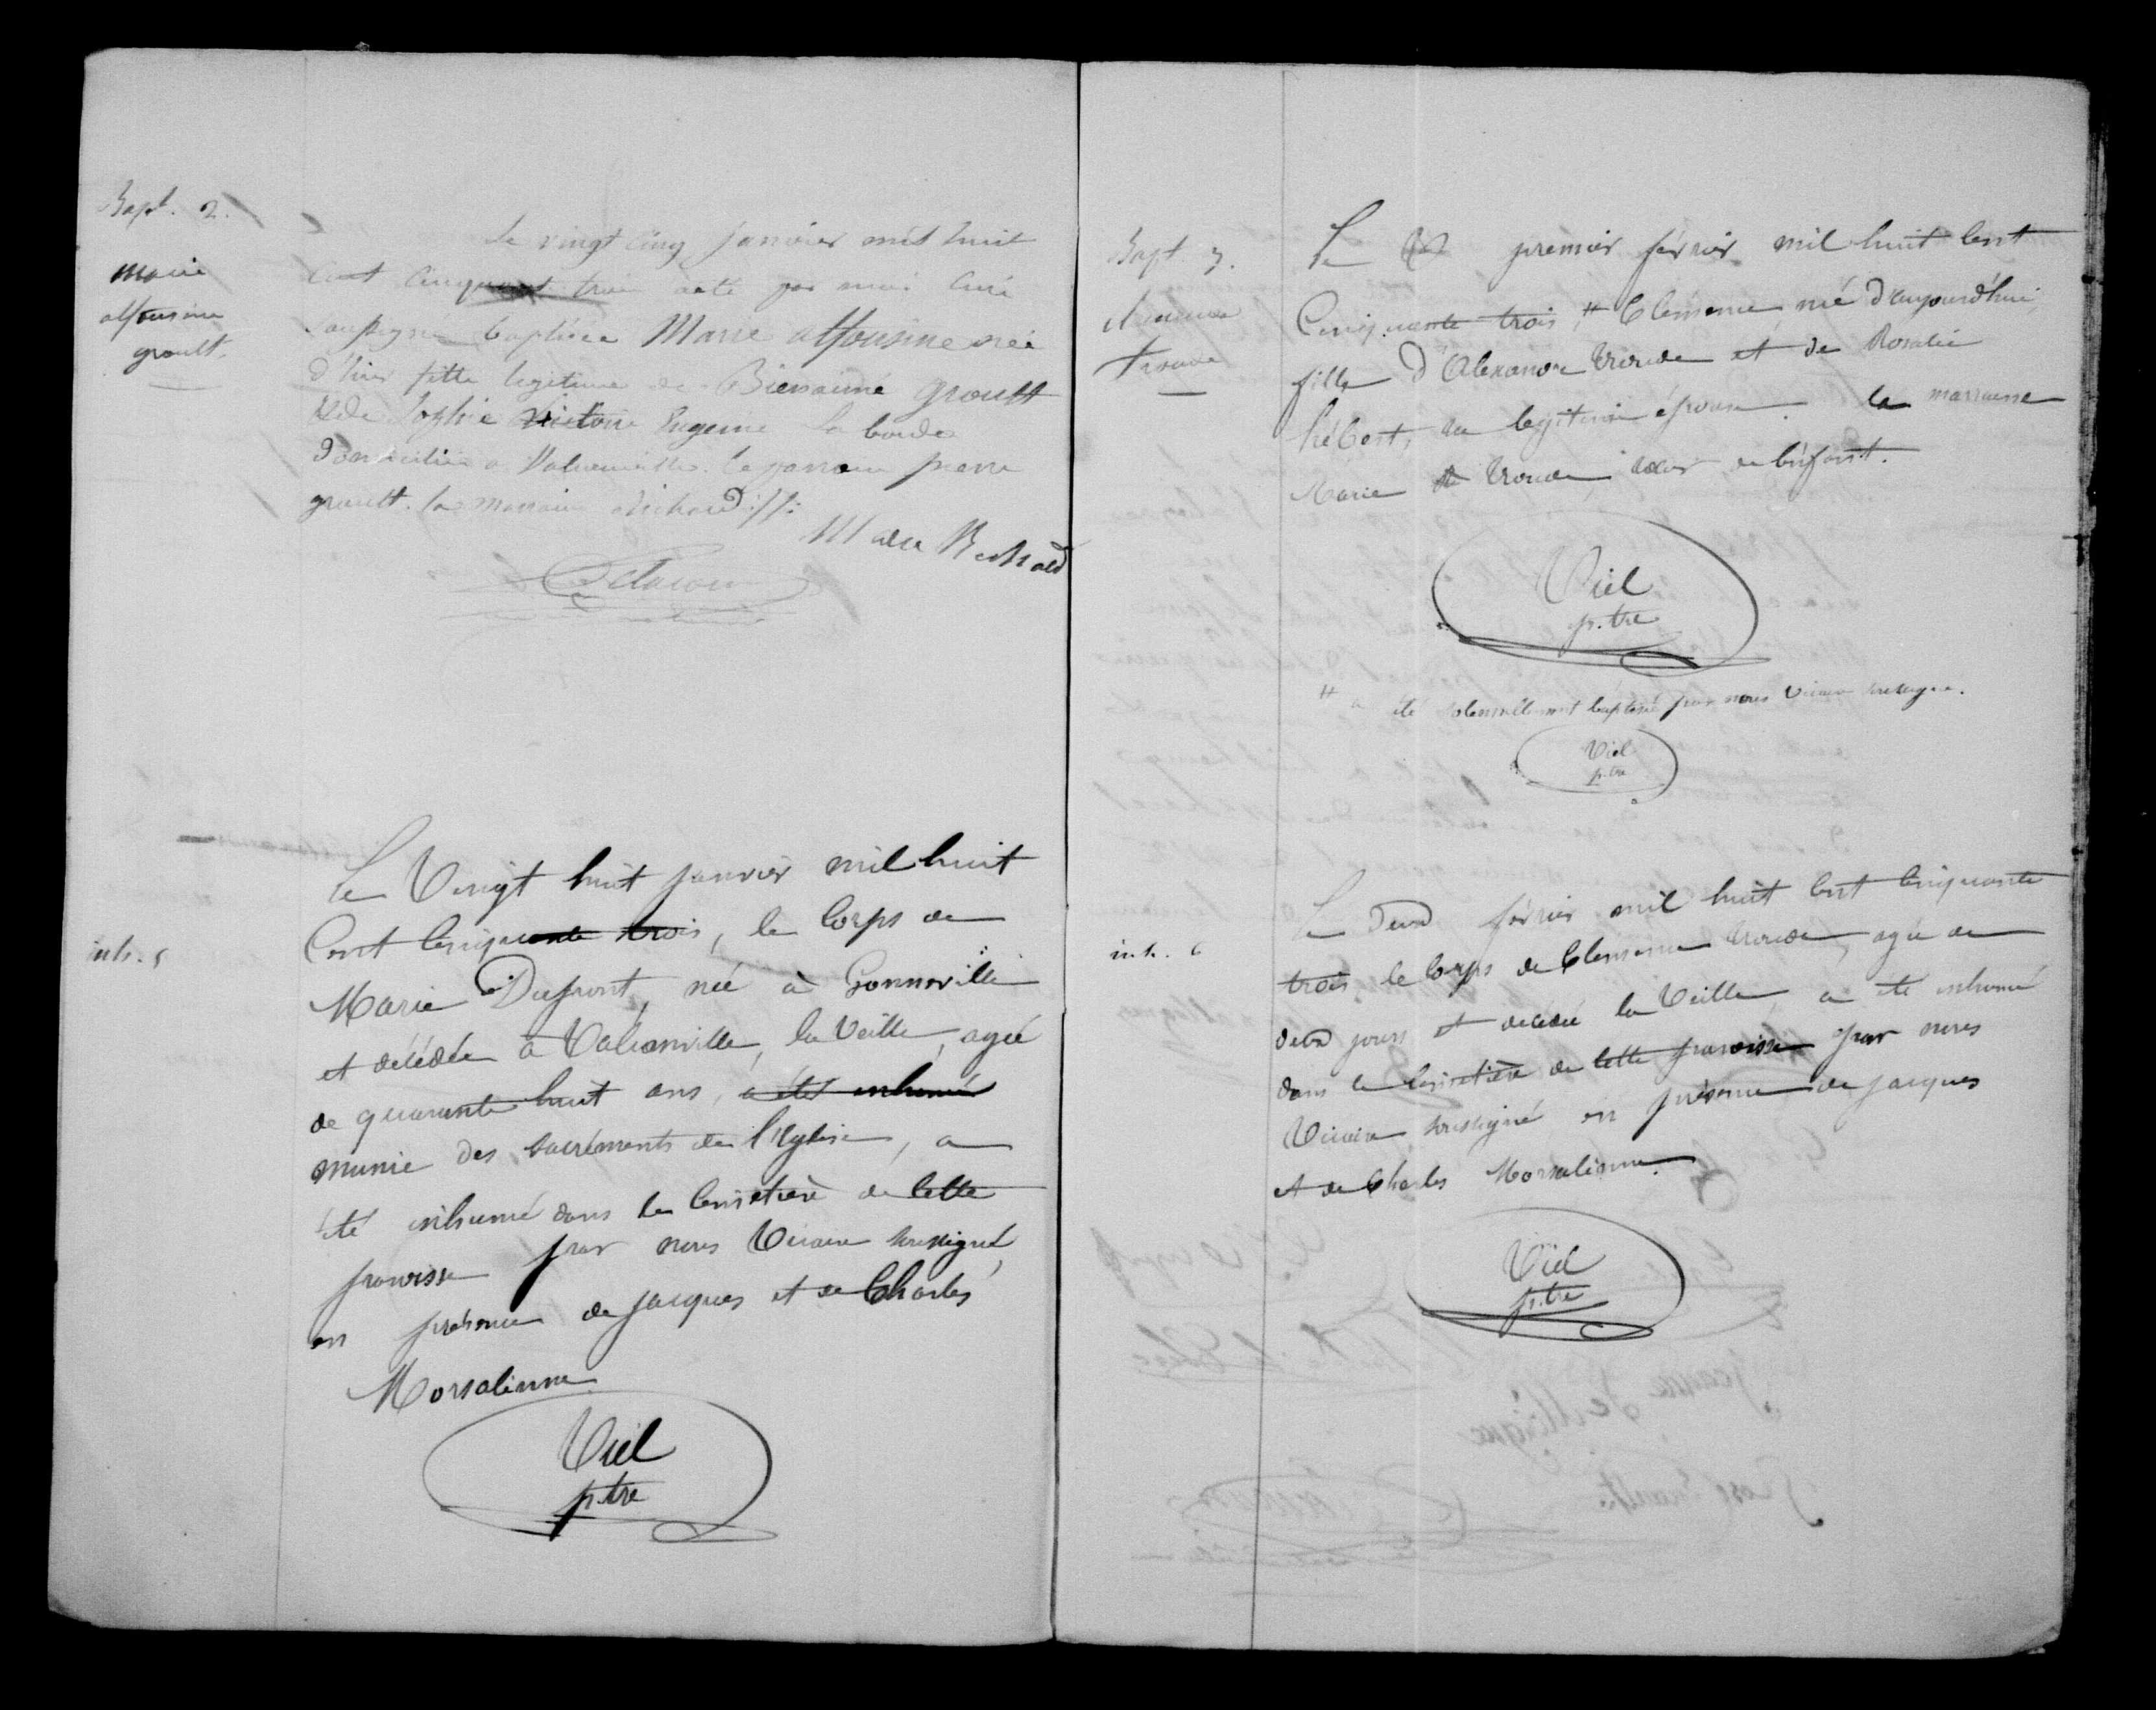 Bapt. 2.
Marie
alfonsine
groult.
Le vingt cinq janvier mil huit
cent cinquante trois a été par moi curé
soussigné baptisée Marie alfonsine née
d'hier fille legitime de Bienaimé groult
& de Sophie Victoire Eugenie La borde
domiciliés a Valcanville. le parrain pierre
groult. la marraine
inh. 5
Le Vingt huit janvier mil huit
Cent Cinquante trois, le Corps de
Marie Dufront, née à Gonneville
et décédée à Valcanville, la Veille, agée
de quarante huit ans, a été inhumé
munie des sacréments de l'Eglise, a
été inhumé dans le Cimetière de Cette
paroisse par nous Vicaire soussigné,
en présence de jacques et de Charles
Morsalinne
Viel
p.tre
Bapt. 3.
Le premier février mil huit Cent
Cinquante trois, # Clémence, née d'aujourd'hui,
fille d'Alexandre Troude et de Rosalie
hébert, sa légitime épouse. la marraine
Marie Troude, sœur de l'enfant.
Viel
p.tre
# a été solennellement baptisé par nous Vicaire soussigné.
Viel
p.tre
inh. 6
Le Deux février mil huit Cent Cinquante
trois le Corps de Clémence Troude, agée de
deux jours et décédée la Veille, a été inhumé
dans le Cimetière de Cette paroisse par nous
Vicaire soussigné en présence de jacques
et de Charles Morsalinne.
Viel
p.tre